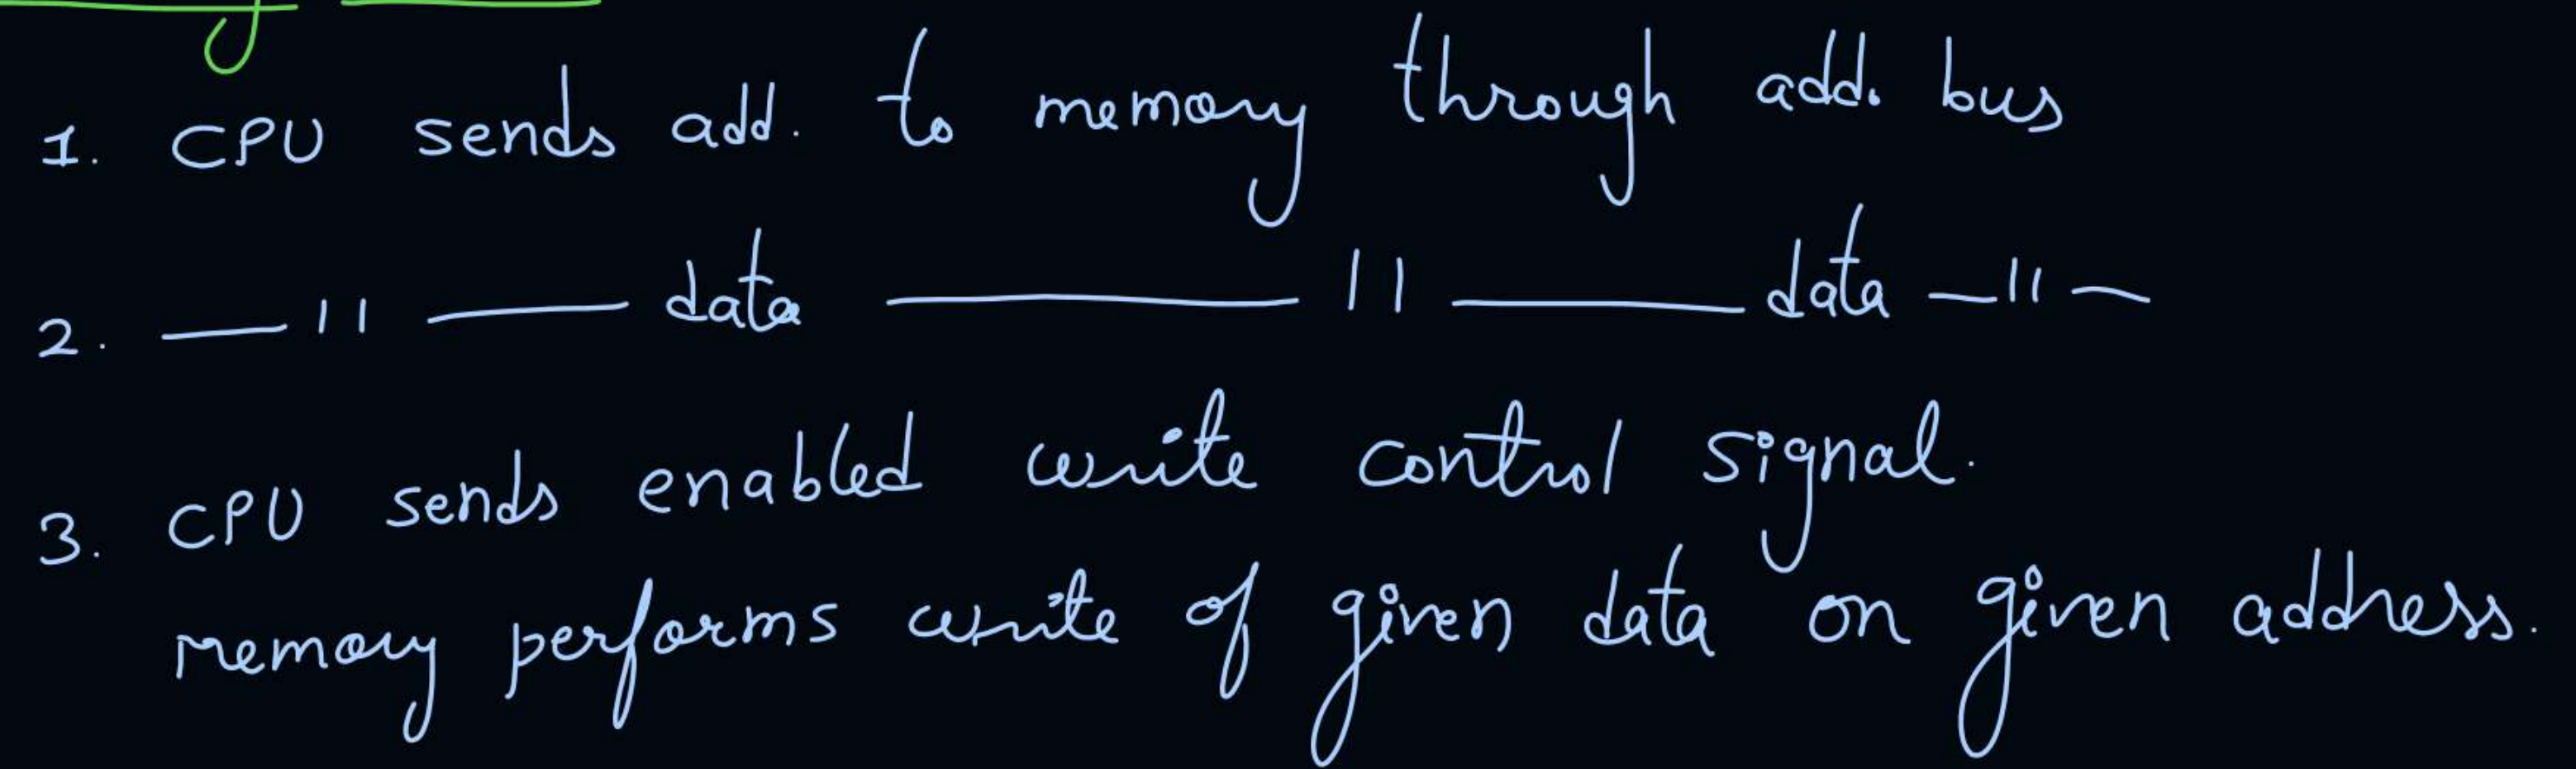 1. CPU sends add. to memory through add. bus
2. —11— data —11— data —11—
3. CPU sends enabled write control signal.
memory performs write of given data on given address.